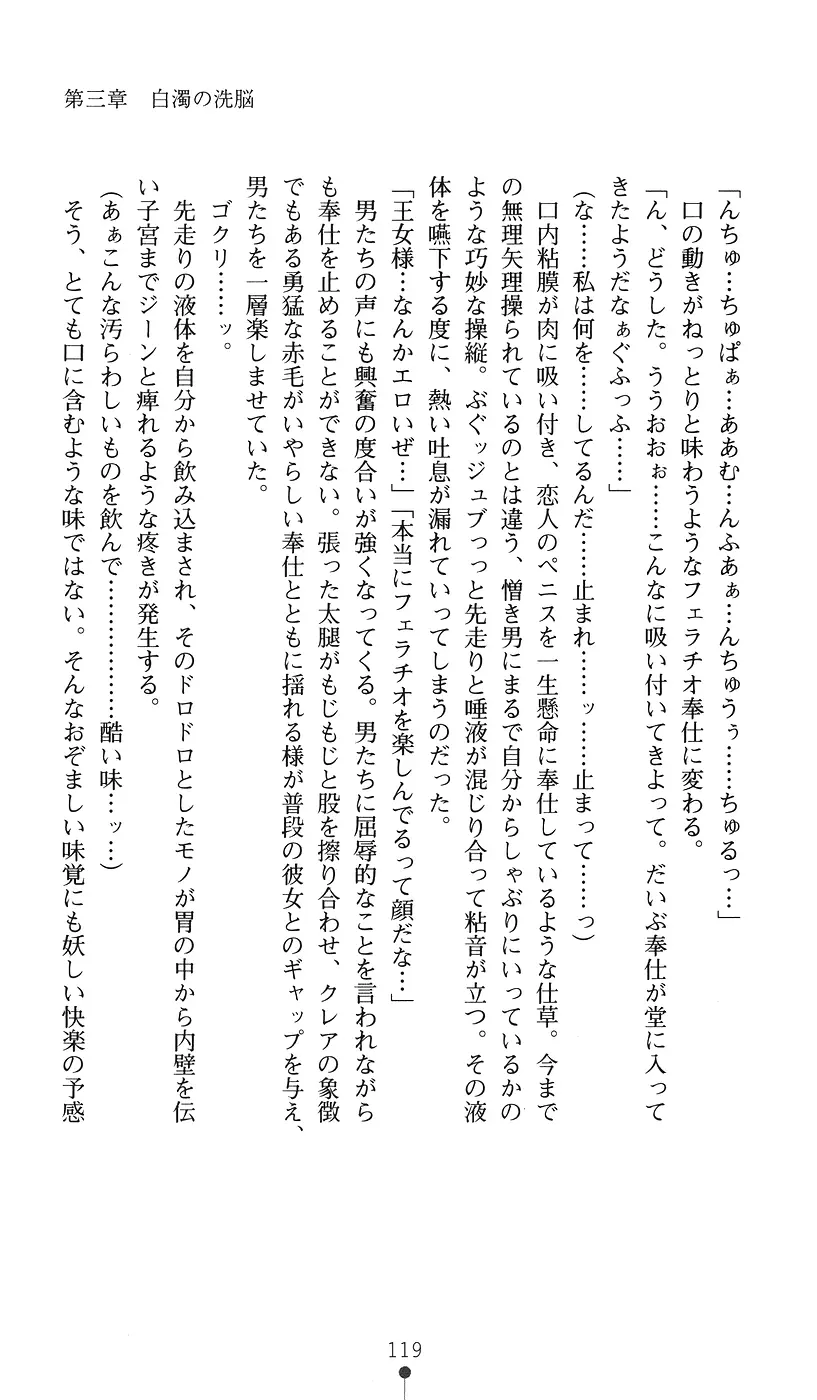 第三章　白濁の洗脳
「んちゅ…ちゅぱぁ…ああむ…んふあぁ…んちゅうぅ……ちゅるっ…」
口の動きがねっとりと味わうようなフェラチオ奉仕に変わる。
「ん、どうした。ううおおぉ……こんなに吸い付いてきよって。だいぶ奉仕が堂に入って
きたようだなぁぐふっふ……」
(な……私は何を……してるんだ……止まれ……ッ……止まって……っ)
口内粘膜が肉に吸い付き、恋人のペニスを一生懸命に奉仕しているような仕草。今まで
の無理矢理操られているのとは違う、憎き男にまるで自分からしゃぶりにいっているかの
ような巧妙な操縦。ぶぐッジュブっっと先走りと唾液が混じり合って粘音が立つ。その液
体を嚥下する度に、熱い吐息が漏れていってしまうのだった。
「王女様…なんかエロいぜ…」「本当にフェラチオを楽しんでるって顔だな…」
男たちの声にも興奮の度合いが強くなってくる。男たちに屈辱的なことを言われながら
も奉仕を止めることができない。張った太腿がもじもじと股を擦り合わせ、クレアの象徴
でもある勇猛な赤毛がいやらしい奉仕とともに揺れる様が普段の彼女とのギャップを与え、
男たちを一層楽しませていた。
ゴクリ……ッ。
先走りの液体を自分から飲み込まされ、そのドロドロとしたモノが胃の中から内壁を伝
い子宮までジーンと痺れるような疼きが発生する。
(あぁこんな汚らわしいものを飲んで………………酷い味…ッ…)
そう、とても口に含むような味ではない。そんなおぞましい味覚にも妖しい快楽の予感
119